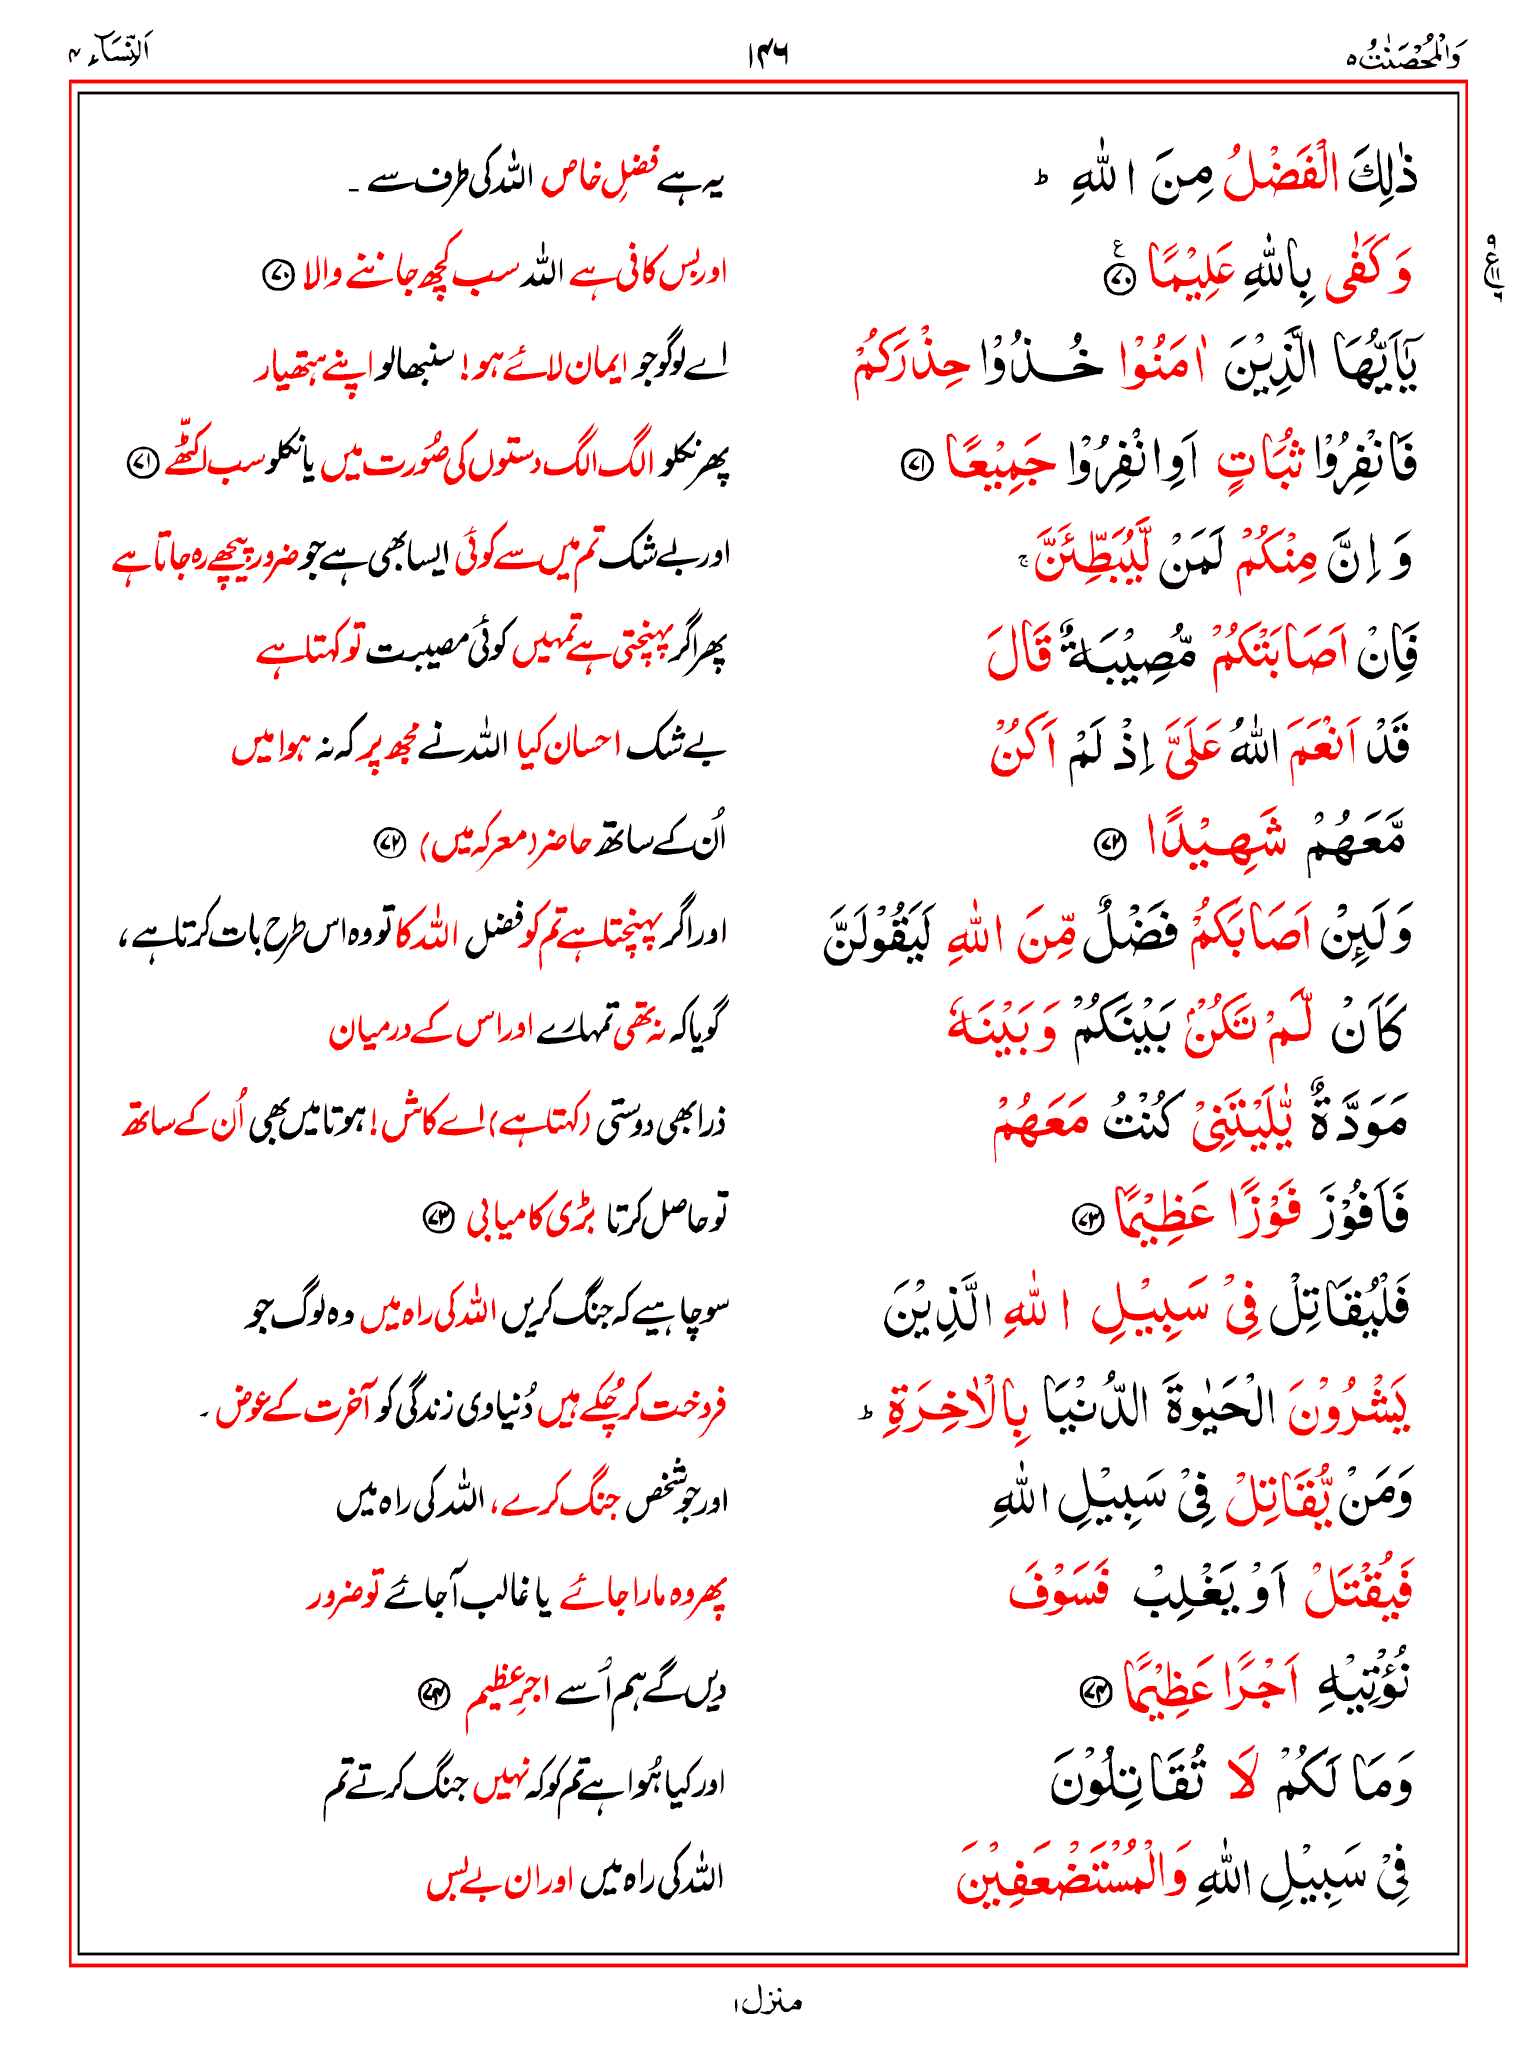 وَالْمُحْصَنٰتُ ۵ ۱۴۶ اَلنِّسَآء ۴
ذٰلِكَ الْفَضْلُ مِنَ اللّٰهِ ؕ یہ ہے فضلِ خاص اللہ کی طرف سے ۔
وَ كَفٰى بِاللّٰهِ عَلِيْمًا ۧ﴿۷۰﴾ اور بس کافی ہے اللہ سب کچھ جاننے والا ﴿۷۰﴾
يٰۤاَيُّهَا الَّذِيْنَ اٰمَنُوْا خُذُوْا حِذْرَكُمْ اے لوگو جو ایمان لائے ہو! سنبھالو اپنے ہتھیار
فَانْفِرُوْا ثُبَاتٍ اَوِ انْفِرُوْا جَمِيْعًا ﴿۷۱﴾ پھر نکلو الگ الگ دستوں کی صُورت میں یا نکلو سب اکٹّھے ﴿۷۱﴾
وَ اِنَّ مِنْكُمْ لَمَنْ لَّيُبَطِّئَنَّ ۚ اور بے شک تم میں سے کوئی ایسا بھی ہے جو ضرور پیچھے رہ جاتا ہے
فَاِنْ اَصَابَتْكُمْ مُّصِيْبَةٌ قَالَ پھر اگر پہنچتی ہے تمہیں کوئی مصیبت تو کہتا ہے
قَدْ اَنْعَمَ اللّٰهُ عَلَىَّ اِذْ لَمْ اَكُنْ بے شک احسان کیا اللہ نے مجھ پر کہ نہ ہوا میں
مَّعَهُمْ شَهِيْدًا ﴿۷۲﴾ اُن کے ساتھ حاضر (معرکہ میں) ﴿۷۲﴾
وَلَئِنْ اَصَابَكُمْ فَضْلٌ مِّنَ اللّٰهِ لَيَقُوْلَنَّ اور اگر پہنچتا ہے تم کو فضل اللہ کا تو وہ اس طرح بات کرتا ہے،
كَاَنْ لَّمْ تَكُنْۢ بَيْنَكُمْ وَبَيْنَهٗ گویا کہ نہ تھی تمہارے اور اس کے درمیان
مَوَدَّةٌ يّٰلَيْتَنِىْ كُنْتُ مَعَهُمْ ذرا بھی دوستی (کہتا ہے) اے کاش! ہوتا میں بھی اُن کے ساتھ
فَاَفُوْزَ فَوْزًا عَظِيْمًا ﴿۷۳﴾ تو حاصل کرتا بڑی کامیابی ﴿۷۳﴾
فَلْيُقَاتِلْ فِىْ سَبِيْلِ اللّٰهِ الَّذِيْنَ سو چاہیے کہ جنگ کریں اللہ کی راہ میں وہ لوگ جو
يَشْرُوْنَ الْحَيٰوةَ الدُّنْيَا بِالْاٰخِرَةِ ؕ فروخت کر چُکے ہیں دُنیاوی زندگی کو آخرت کے عوض ۔
وَمَنْ يُّقَاتِلْ فِىْ سَبِيْلِ اللّٰهِ اور جو شخص جنگ کرے، اللہ کی راہ میں
فَيُقْتَلْ اَوْ يَغْلِبْ فَسَوْفَ پھر وہ مارا جائے یا غالب آ جائے تو ضرور
نُؤْتِيْهِ اَجْرًا عَظِيْمًا ﴿۷۴﴾ دیں گے ہم اُسے اجرِ عظیم ﴿۷۴﴾
وَمَا لَكُمْ لَا تُقَاتِلُوْنَ اور کیا ہُوا ہے تم کو کہ نہیں جنگ کرتے تم
فِىْ سَبِيْلِ اللّٰهِ وَالْمُسْتَضْعَفِيْنَ اللہ کی راہ میں اور ان بے بس
منزل ۱